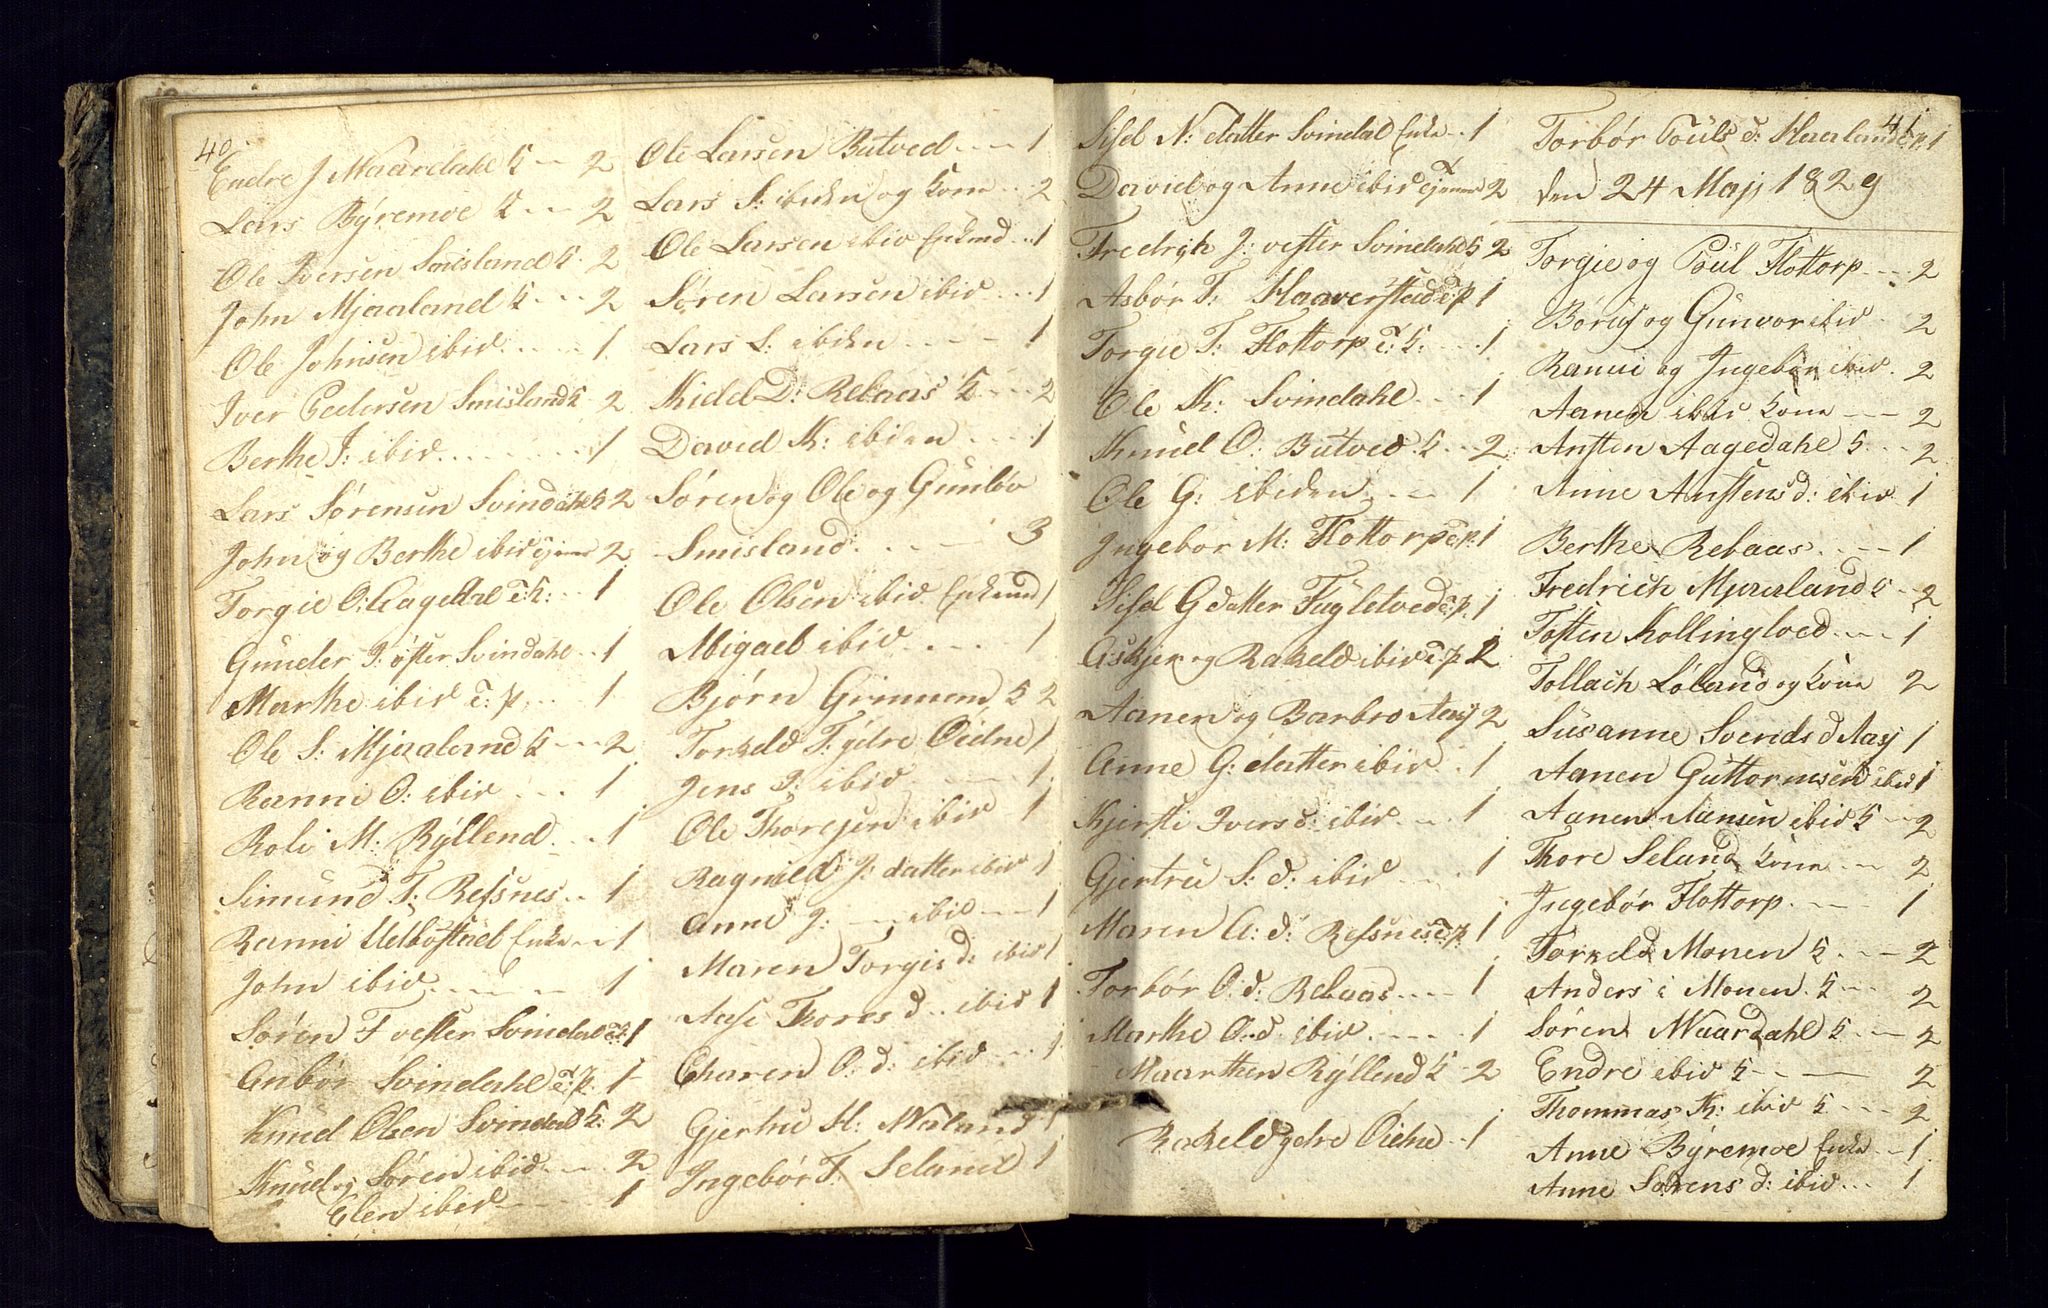 40
Endre J Waardahl K 2
Lars Býremoe K 2
Ole Iversen Smisland K 2
John Mjaaland K 2
Ole Johnsen ibid 1
Iver Pedersen Smisland K 2
Berthe J: ibid 1
Lars Sørensen Svindahl K 2
John og Berthe ibid 2
Torgie O: Aagedahl 1
Gunder J: øfter Svindahl 1
Marthe ibid e: p 1
Ole S: Mjaaland K 2
Ranni O: ibid 1
Roli M: Rýllend 1
Simund T: Refsnes 1
Ranni Uelbøstad Enke 1
John ibid 1
Søren F vefter Svindal 1
Anbør Svindahl e: p. 1
Knud Olsen Svindal K: 2
Knud og Søren ibid 2
Elen ibid 1
Ole Larsen Butved 1
Lars S: ibiden og Kone 2
Ole Larsen ibid Enkmd 1
Søren Larsen ibid 1
Lars L: ibiden 1
Kidel D: Rebaas K 2
David K: ibiden 1
Søren og Ole og Gunløv
Smisland 3
Ole Olsen ibid Enkmd 1
Abigael ibid 1
Bjørn Grimnem K 2
Torkeld T: ýdre Øidne 1
Jens J: ibid 1
Ole Thoresen ibid 1
Ragnild J: datter ibid 1
Anne J: ibid 1
Maren Torgis d: ibid 1
Aase Thores d. ibid 1
Charen O: d: ibid 1
Gjertru H: Waland 1
Ingebør T: Seland 1
Sifel N: datter Svindal Enke 1
David og Anne ibid 2
Fredrich J: vefter Svindahl K 2
Asbør T: Haaverstad e: p 1
Torgie T: Flottorp e: K: 1
Ole K: Svindahl 1
Knud O: Butved K 2
Ole G: ibiden 1
Ingebor M: Flottorp e: p: 1
Sifel G datter Fugletved e: p. 1
Askjer og Rakeld ibid e: p 2
Aanen og Barbro Aasj 2
Anne G: datter ibid 1
Kjersti Ivers d: ibid 1
Gjertru S: d: ibid 1
Maren A: d: Refsnes e: p 1
Torbør O: d: Rebaas 1
Marthe O: d ibid 1
Maarthen Rýllend K 2
Rakeld ydre Øidne 1
41
Torbør Pouls d: Haaland e: p. 1
den 24 Maj 1829
Torgie og Poul Flottorp 2
Børuf og Gunvor ibid 2
Ranni og Ingebør ibid 2
Aanen ibid Kone 2
Ansten Aagedahl K 2
Anne Anstens d: ibid 1
Berthe Rebaas 1
Fredrich Mjaaland K 2
Tosten Kollingloed 1
Tollach Løland og Kone 2
Susanne Svends d Aasj 1
Aanen Guttormsen ibid 1
Aanen Aansen ibid K 2
Thore Seland Kone 2
Ingebør Flottorp 1
Torkeld Monen K 2
Anders i Monen K 2
Søren Waardahl K 2
Endre ibid K 2
Thommas K: ibid K 2
Anne Býremoe Enke 1
Anne Sørens d: ibid 1